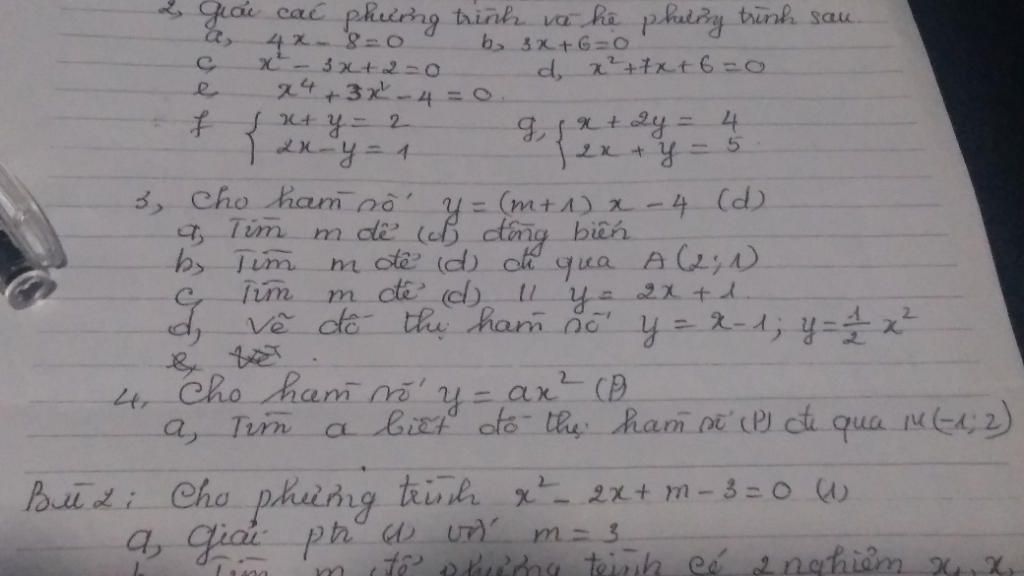 2, Giải các phương trình và hệ phương trình sau.
a, 4x - 8 = 0 b, 3x + 6 = 0
c, x² - 3x + 2 = 0 d, x² + 7x + 6 = 0
e, x⁴ + 3x² - 4 = 0.
f, { x + y = 2 g, { x + 2y = 4
2x - y = 1 2x + y = 5
3, Cho hàm số y = (m+1) x - 4 (d)
a, Tìm m để (d) đồng biến
b, Tìm m để (d) đi qua A(2; 1)
c, Tìm m để (d) // y = 2x + 1.
d, Vẽ đồ thị hàm số y = x - 1; y = 1/2 x²
e,
4, Cho hàm số y = ax² (P)
a, Tìm a biết đồ thị hàm số (P) đi qua M(-1; 2)
Bài 2: Cho phương trình x² - 2x + m - 3 = 0 (1)
a, Giải ph (1) với m = 3
Tìm m để phương trình có 2 nghiệm x₁, x